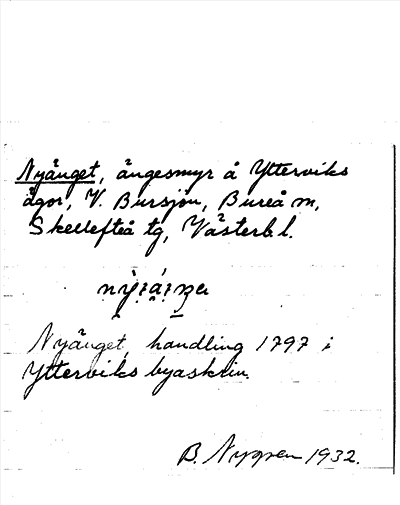 Nyänget, ängesmyr å Ytterviks
ägor, V. Bursjön, Bureå m,
Skellefteå tg, Västerb.l.
Nyänget, handling 1797 i
Ytterviks byaskrin.
B. Nygren 1932.